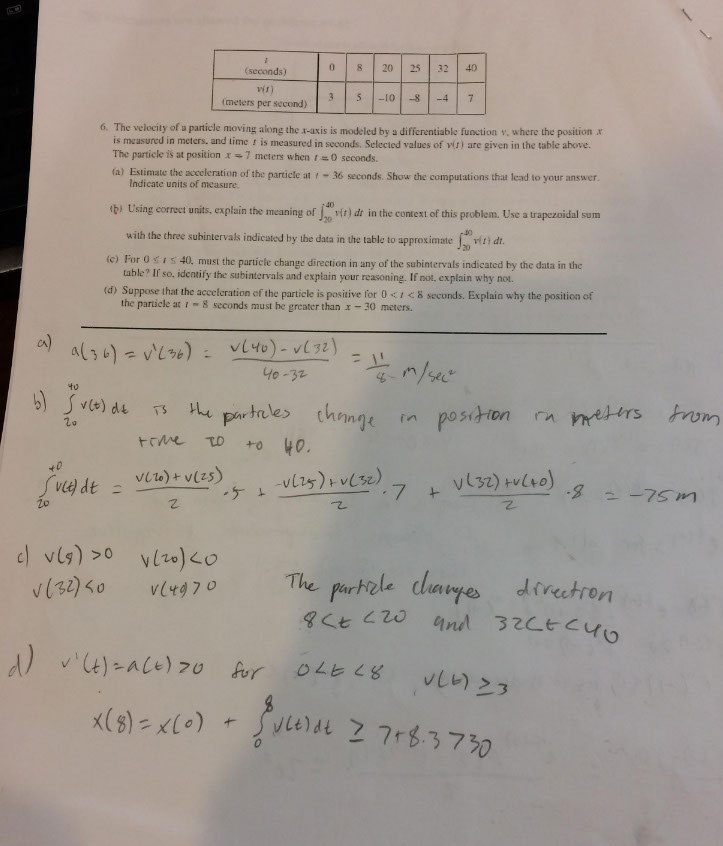 t (seconds) 0 8 20 25 32 40
v(t) (meters per second) 3 5 −10 −8 −4 7
6. The velocity of a particle moving along the x-axis is modeled by a differentiable function v, where the position x
is measured in meters, and time t is measured in seconds. Selected values of v(t) are given in the table above.
The particle is at position x = 7 meters when t = 0 seconds.
(a) Estimate the acceleration of the particle at t = 36 seconds. Show the computations that lead to your answer.
Indicate units of measure.
(b) Using correct units, explain the meaning of ∫₂₀⁴⁰ v(t) dt in the context of this problem. Use a trapezoidal sum
with the three subintervals indicated by the data in the table to approximate ∫₂₀⁴⁰ v(t) dt.
(c) For 0 ≤ t ≤ 40, must the particle change direction in any of the subintervals indicated by the data in the
table? If so, identify the subintervals and explain your reasoning. If not, explain why not.
(d) Suppose that the acceleration of the particle is positive for 0 < t < 8 seconds. Explain why the position of
the particle at t = 8 seconds must be greater than x = 30 meters.
a) a(36) = v'(36) = (v(40) - v(32)) / (40-32) = 11/8 m/sec²
b) ∫₂₀⁴⁰ v(t) dt is the particles change in position in meters from
time 20 to 40.
∫₂₀⁴⁰ v(t) dt = (v(20) + v(25))/2 · 5 + (-v(25) + v(32))/2 · 7 + (v(32) + v(40))/2 · 8 = -75m
c) v(8) > 0 v(20) < 0
v(32) < 0 v(40) > 0 The particle changes direction
8 < t < 20 and 32 < t < 40
d) v'(t) = a(t) > 0 for 0 < t < 8 v(t) ≥ 3
x(8) = x(0) + ∫₀⁸ v(t) dt ≥ 7+8·3 > 30